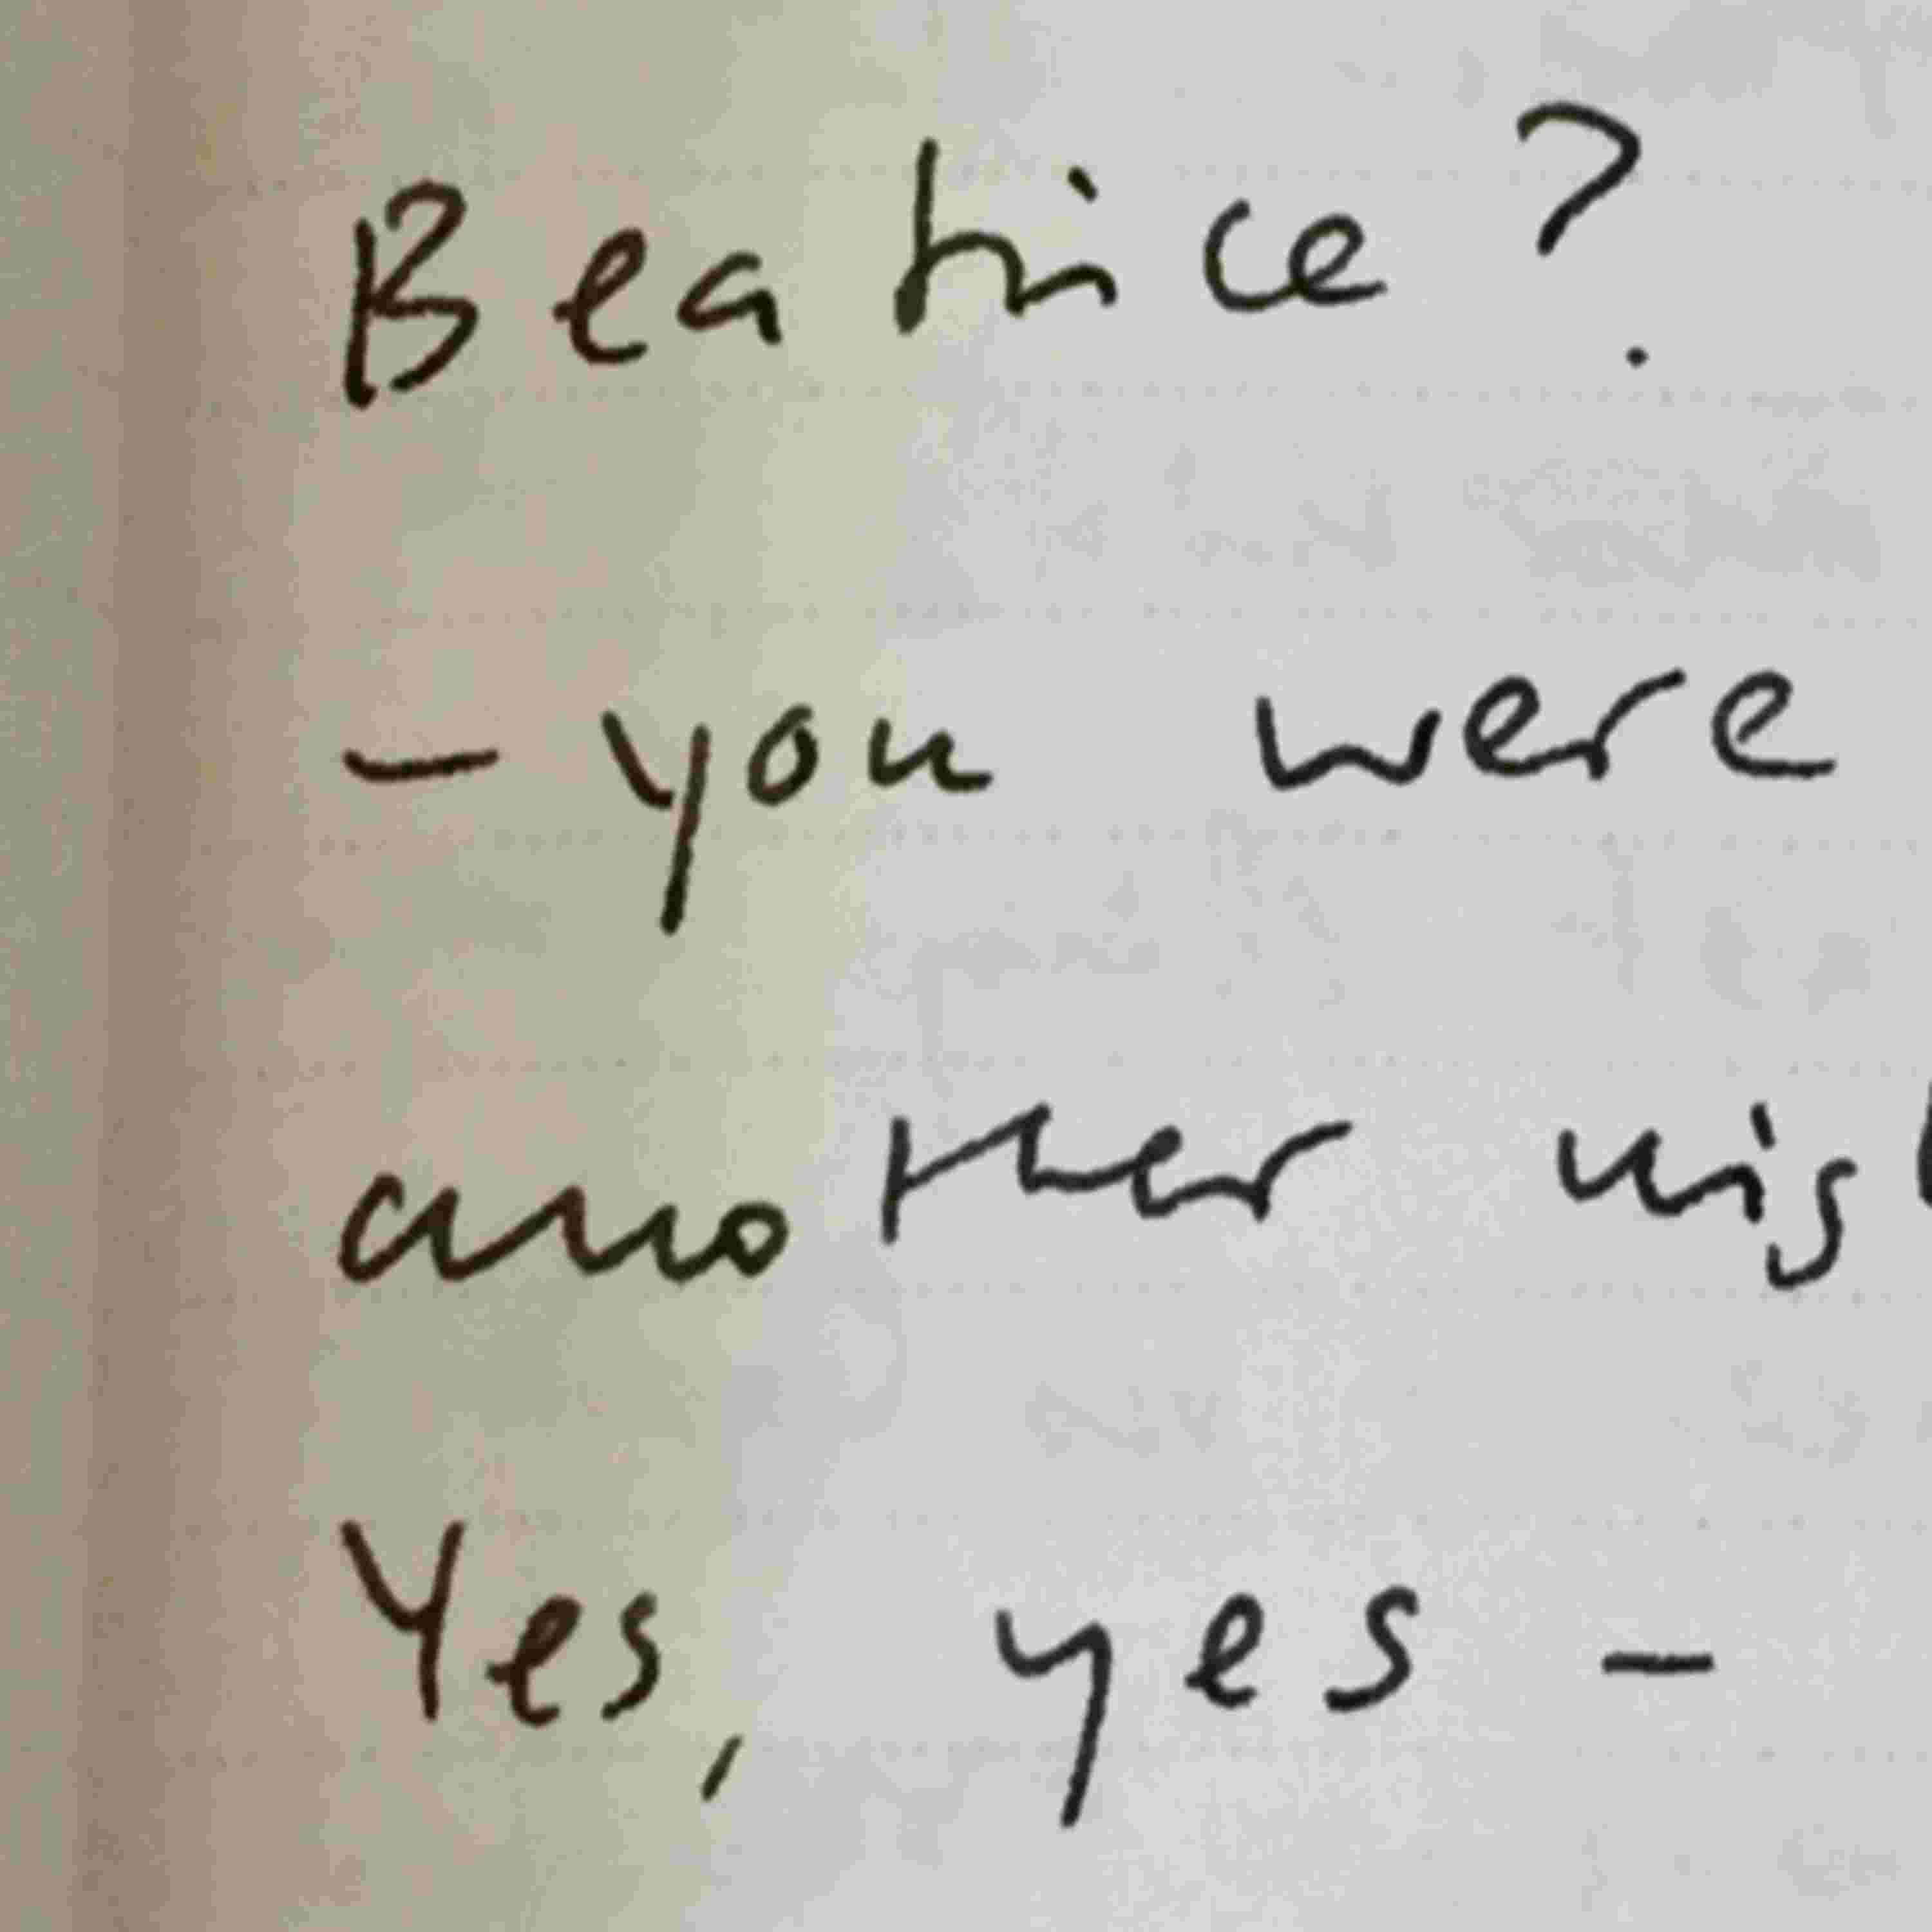 Beatrice?
- you were
another nig
Yes, yes -